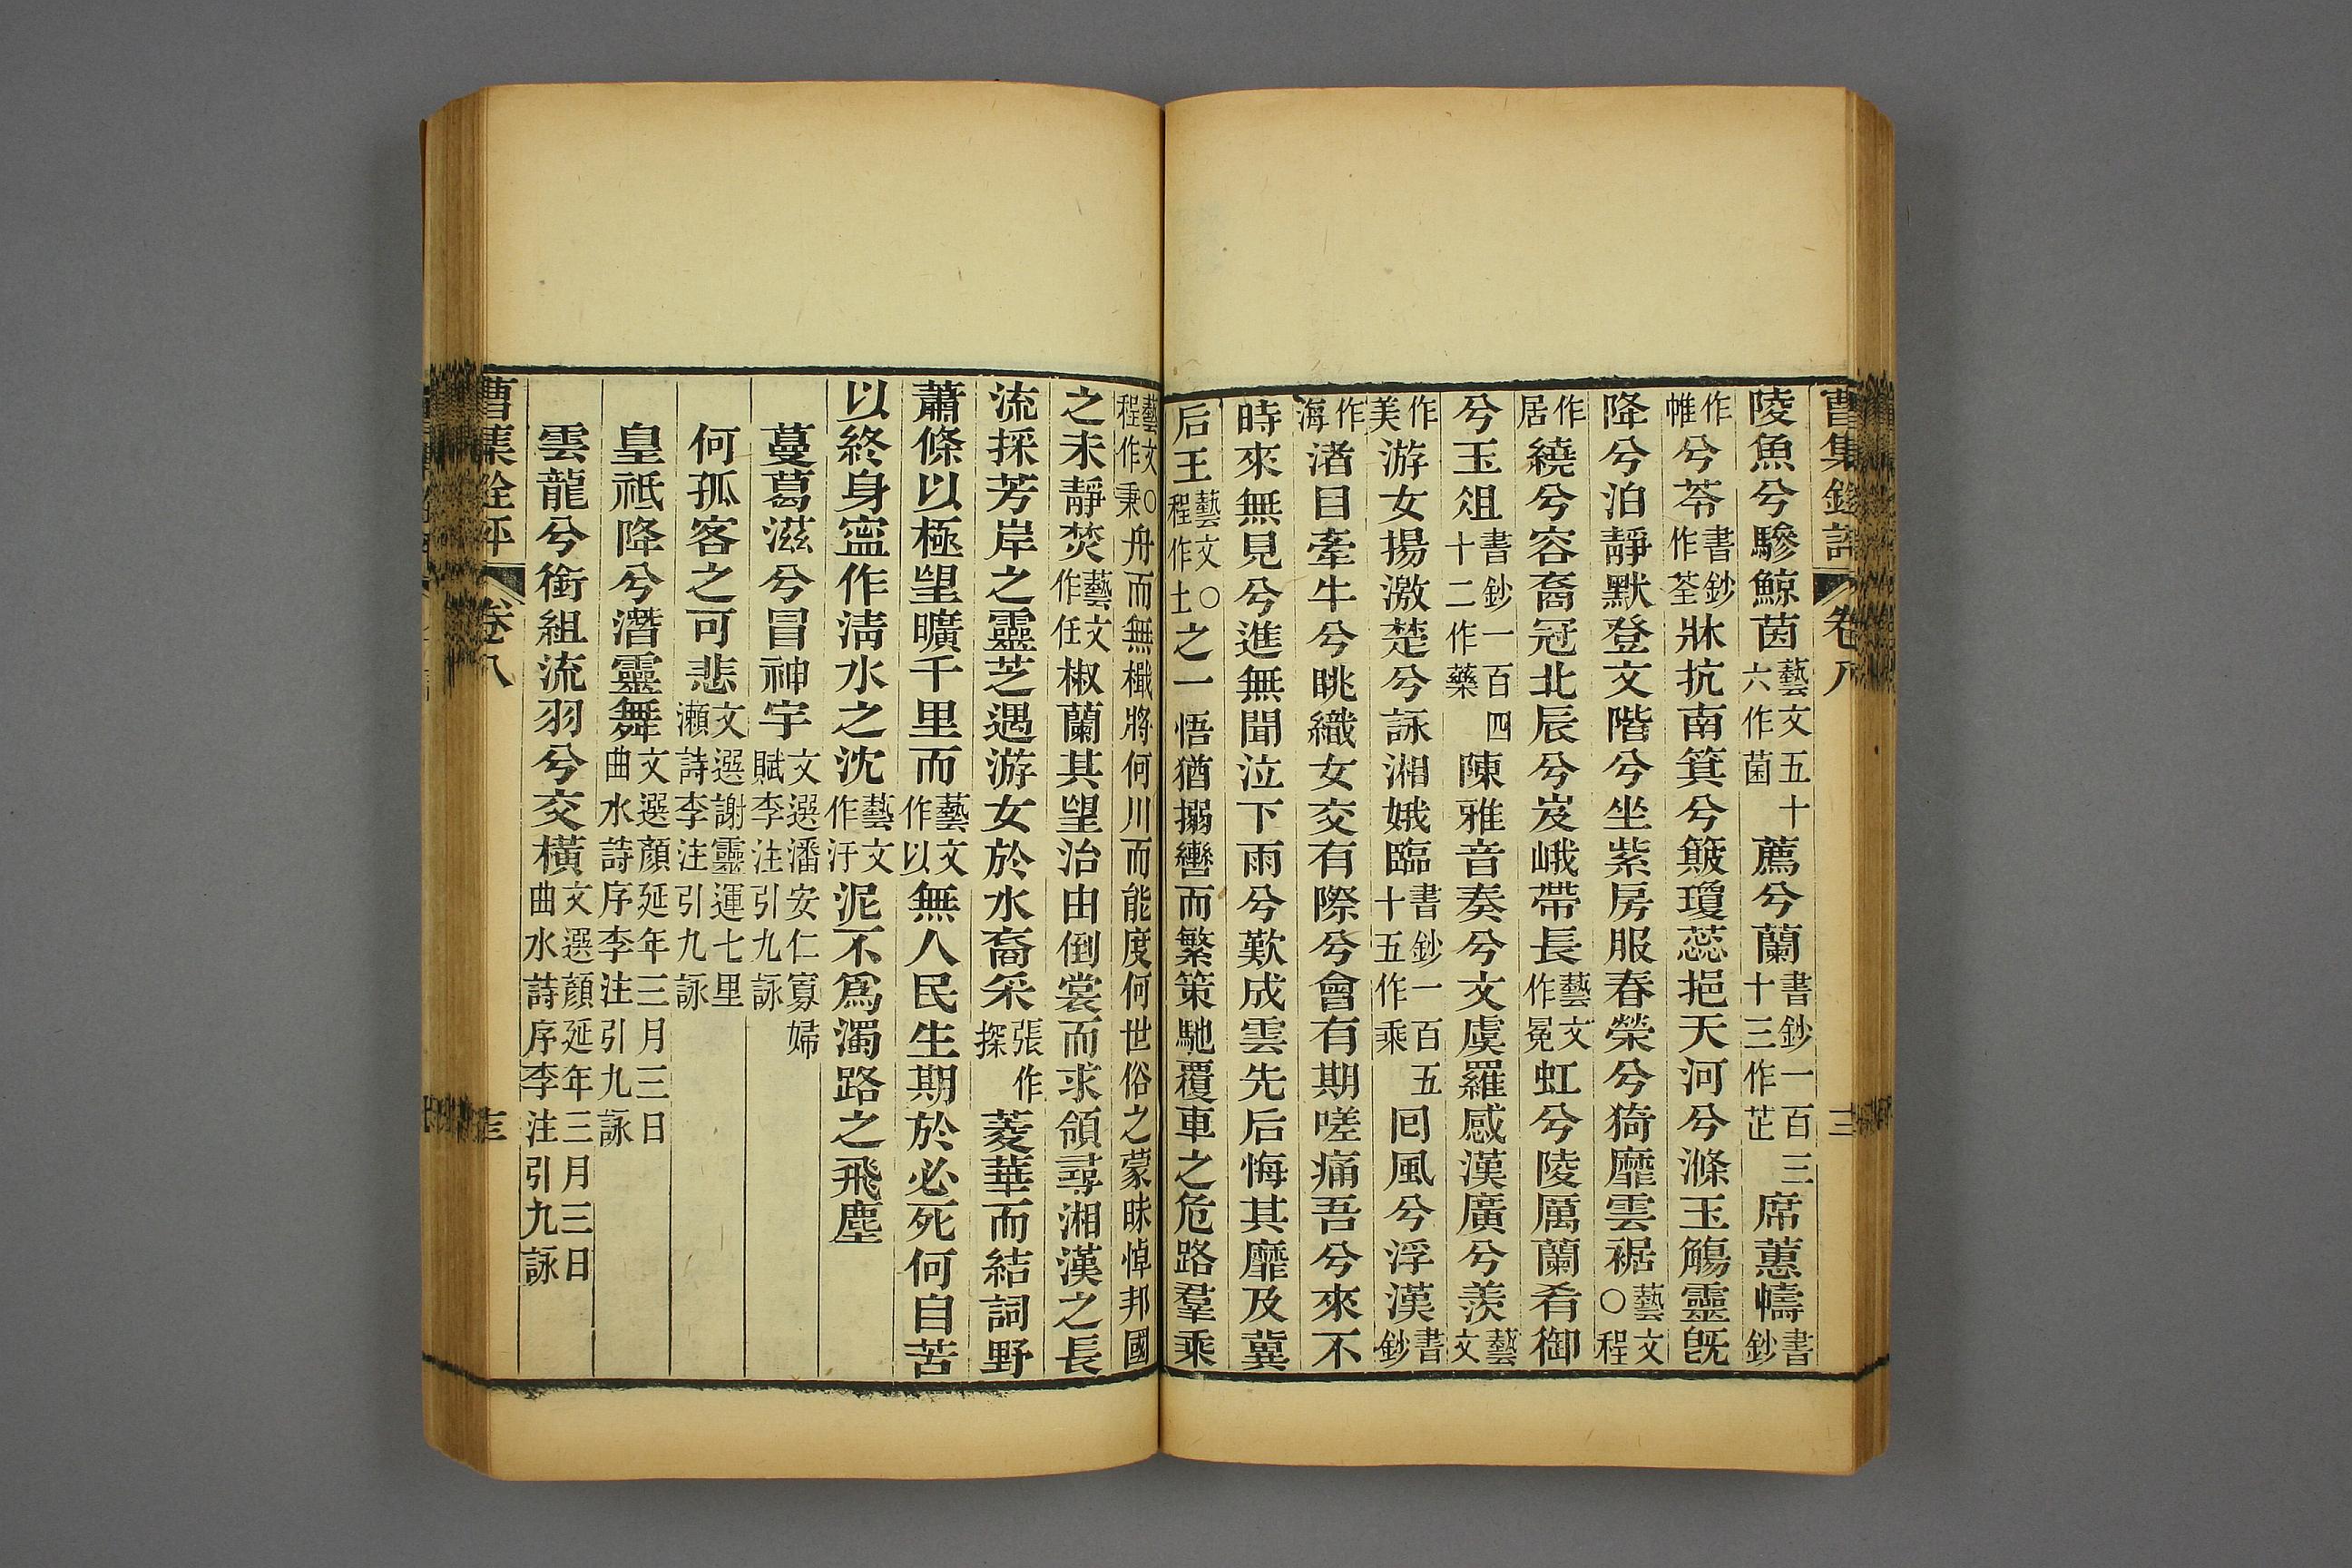 曹集銓評 卷八 三
陵魚兮驂鯨茵藝文五十六作菌薦兮蘭書鈔一百三十三作芷席蕙幬書鈔
作帷兮苓書鈔作荃牀抗南箕兮簸瓊蕊挹天河兮滌玉觴靈旣
降兮泊靜默登文階兮坐紫房服春榮兮猗靡雲裾藝文〇程
作居繞兮容裔冠北辰兮岌峨帶長藝文作冕虹兮陵厲蘭肴御
兮玉俎書鈔一百四十二作藥陳雅音奏兮文虞羅感漢廣兮羨藝文
作美游女揚激楚兮詠湘娥臨書鈔一百五十五作乘囘風兮浮漢書鈔
作海渚目牽牛兮眺織女交有際兮會有期嗟痛吾兮來不
時來無見兮進無聞泣下雨兮歎成雲先后悔其靡及冀
后王藝文〇程作士之一悟猶搦轡而繁策馳覆車之危路羣乘
藝文〇程作秉舟而無檝將何川而能度何世俗之蒙昧悼邦國
之未靜焚藝文作任椒蘭其望治由倒裳而求領尋湘漢之長
流採芳岸之靈芝遇游女於水裔采張作探菱華而結詞野
蕭條以極望曠千里而藝文作以無人民生期於必死何自苦
以終身寍作淸水之沈藝文作汙泥不爲濁路之飛塵
蔓葛滋兮冒神宇文選潘安仁寡婦賦李注引九詠
何孤客之可悲文選謝靈運七里瀨詩李注引九詠
皇祇降兮潛靈舞文選顏延年三月三日曲水詩序李注引九詠
雲龍兮銜組流羽兮交橫文選顏延年三月三日曲水詩序李注引九詠
曹集銓評 卷八